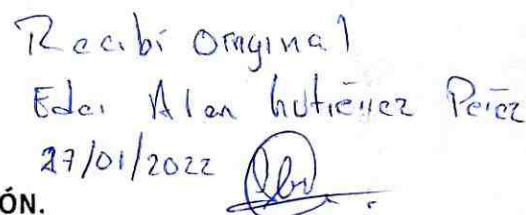 Recibí Original
Eder Alan Gutiérrez Pérez
27/01/2022
ÓN.